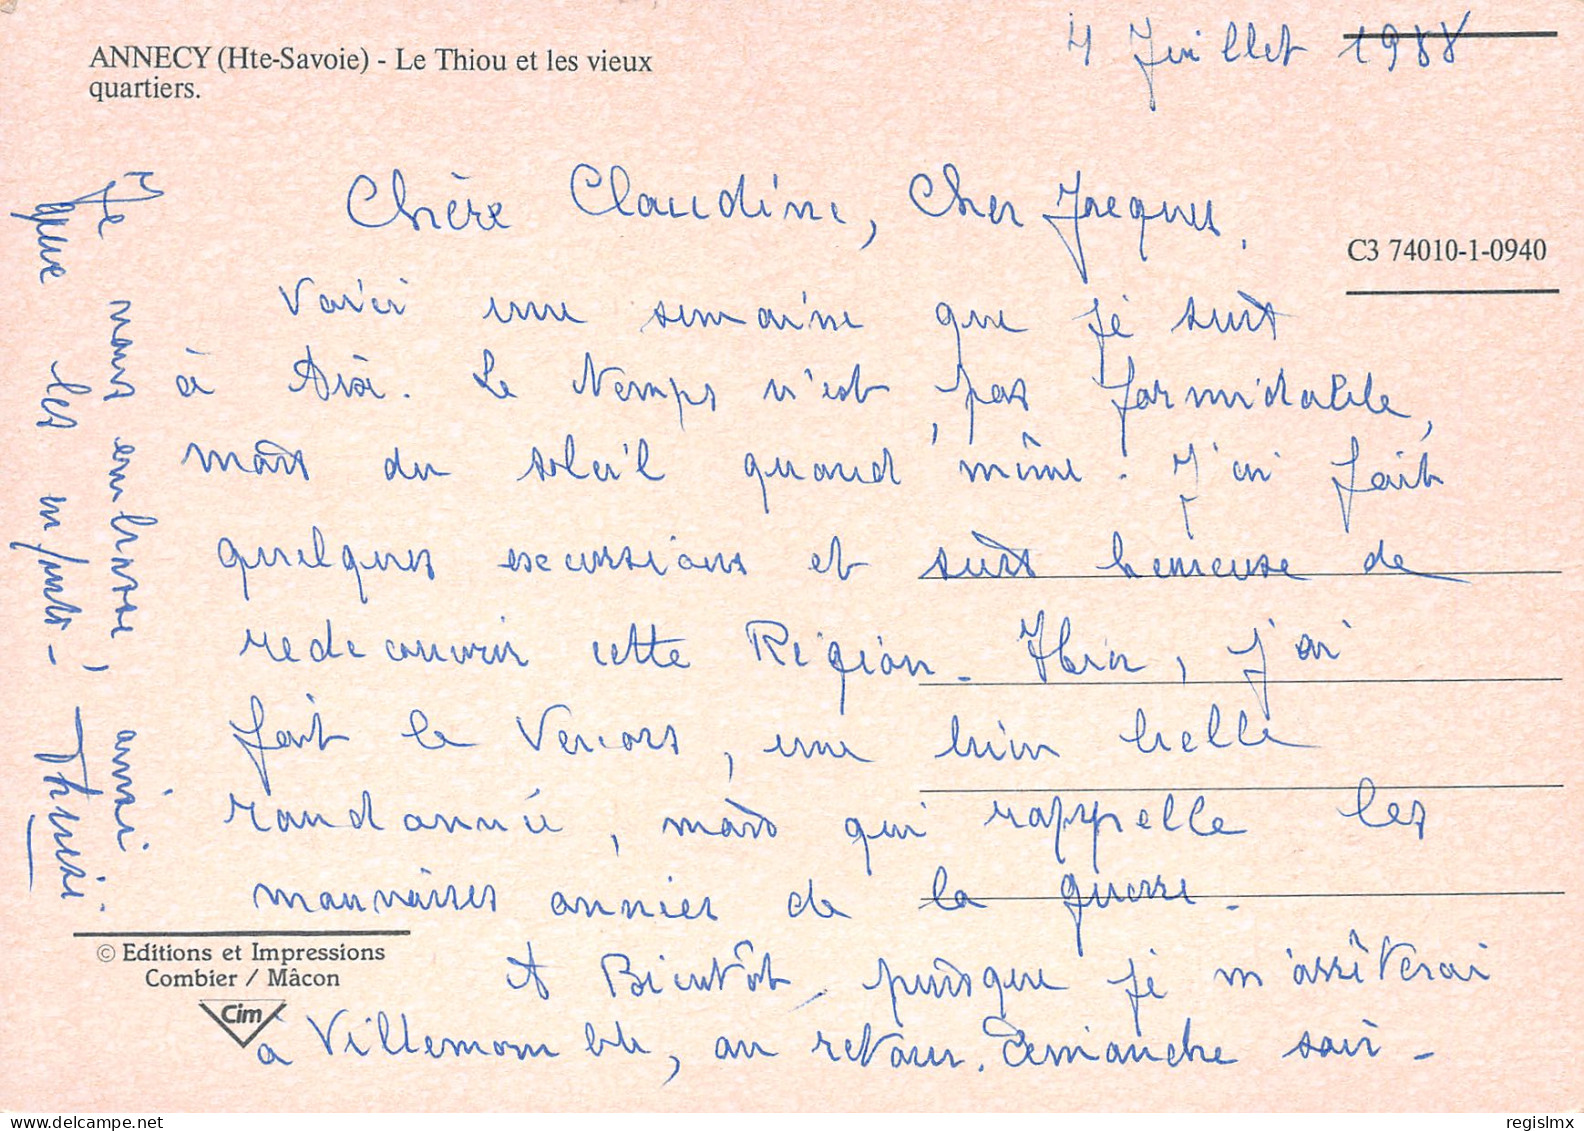 ANNECY (Hte-Savoie) - Le Thiou et les vieux
quartiers.
4 Juillet 1988
Chère Claudine, Cher Jacques,
C3 74010-1-0940
Voici une semaine que je suis
à Aix. Le temps n'est pas formidable,
mais du soleil quand même. J'ai fait
quelques excursions et suis heureuse de
redecouvrir cette Région. Hier, j'ai
fait le Vercors, une bien belle
randonnée, mais qui rappelle les
mauvaises années de la guerre.
A Bientôt, puisque je m'arrêterai
à Villemomble, au retour. Dimanche soir -
Je vous embrasse, ainsi
que les enfants -
© Editions et Impressions
Combier / Mâcon
Cim
delcampe.net
regislmx